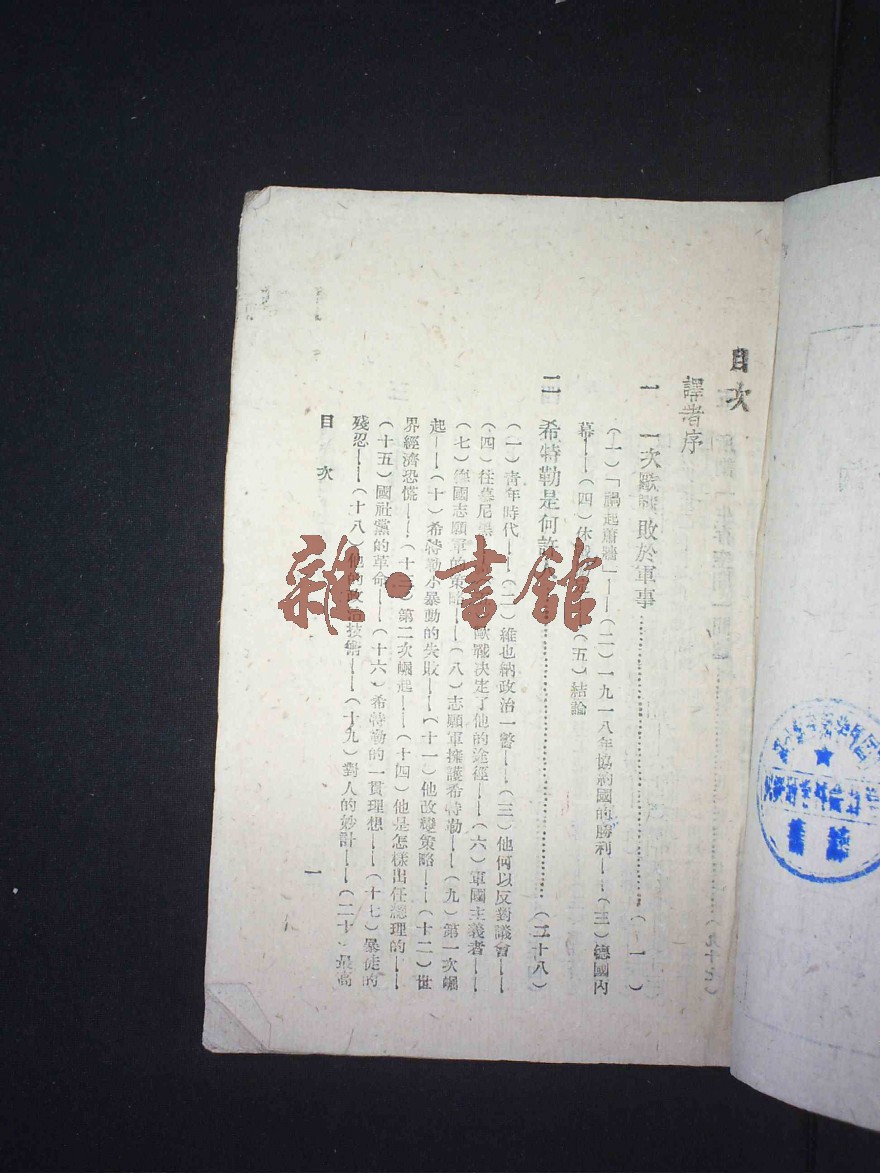 目次
譯者序
一 一次歐戰敗於軍事…………(一)
(一)「禍起蕭牆」——(二)一九一八年協約國的勝利——(三)德國內
幕——(四)休 (五)結論
二 希特勒是何許 …………(二十八)
(一)青年時代——(二)維也納政治一瞥——(三)他何以反對議會——
(四)往慕尼黑 歐戰決定了他的途徑——(六)軍國主義者——
(七)德國志願軍的策略——(八)志願軍擁護希特勒——(九)第一次崛
起——(十)希特勒小暴動的失敗——(十一)他改變策略——(十二)世
界經濟恐慌——(十三)第二次崛起——(十四)他是怎樣出任總理的——
(十五)國社黨的革命——(十六)希特勒的一貫理想——(十七)暴徒的
殘忍——(十八)他的政治技術——(十九)對人的妙計——(二十)最高
目次
一
雜·書館